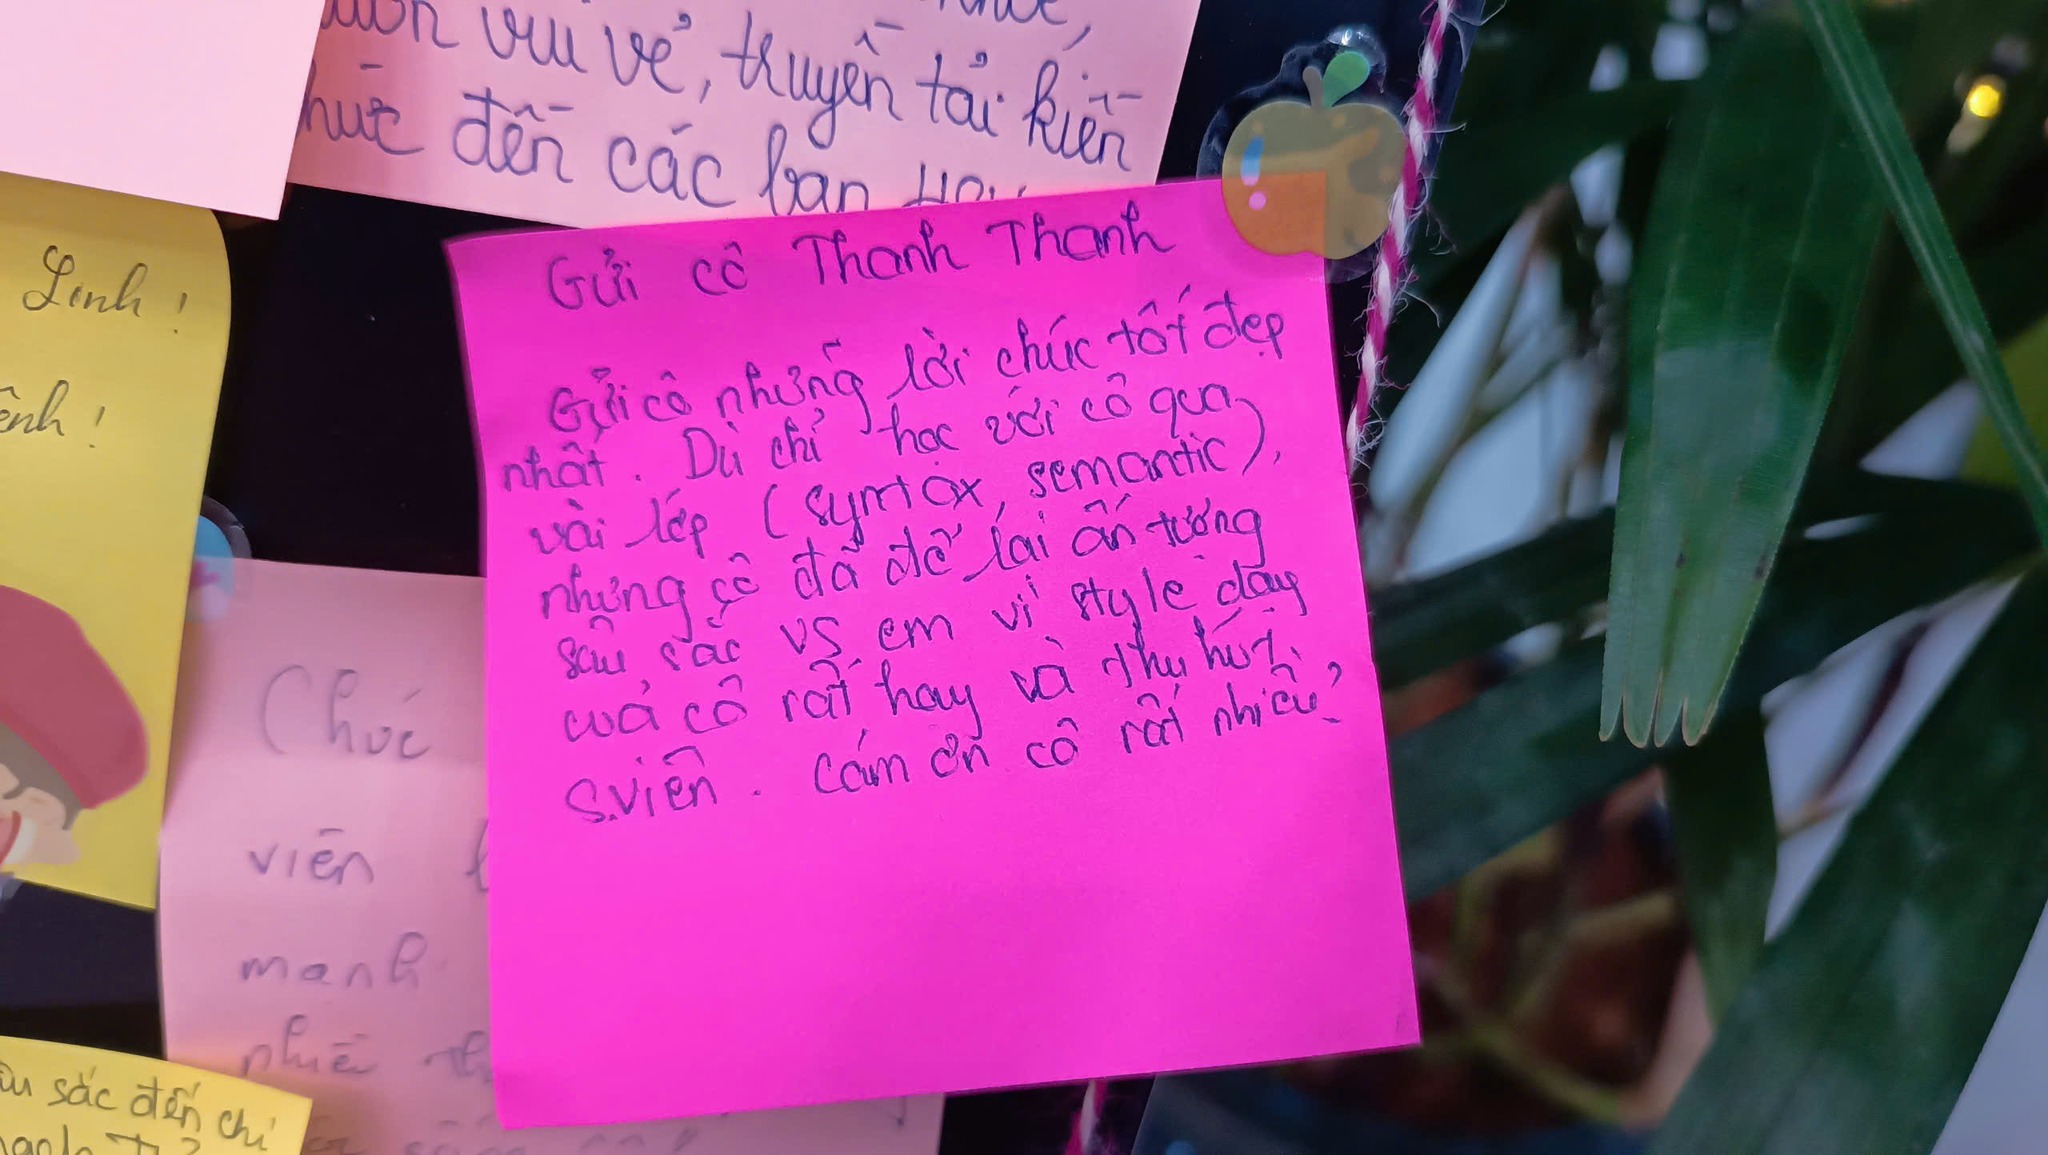 vui vẻ, truyền tải kiến
đến các bạn
Linh!
Gửi cô Thanh Thanh
Gửi cô những lời chúc tốt đẹp
nhất. Dù chỉ học với cô qua
vài lớp (syntax, semantic),
nhưng cô đã để lại ấn tượng
sâu sắc vs em vì style dạy
của cô rất hay và thu hút
s.viên. Cám ơn cô rất nhiều
Chúc
viên
mạnh
sắc đến chị